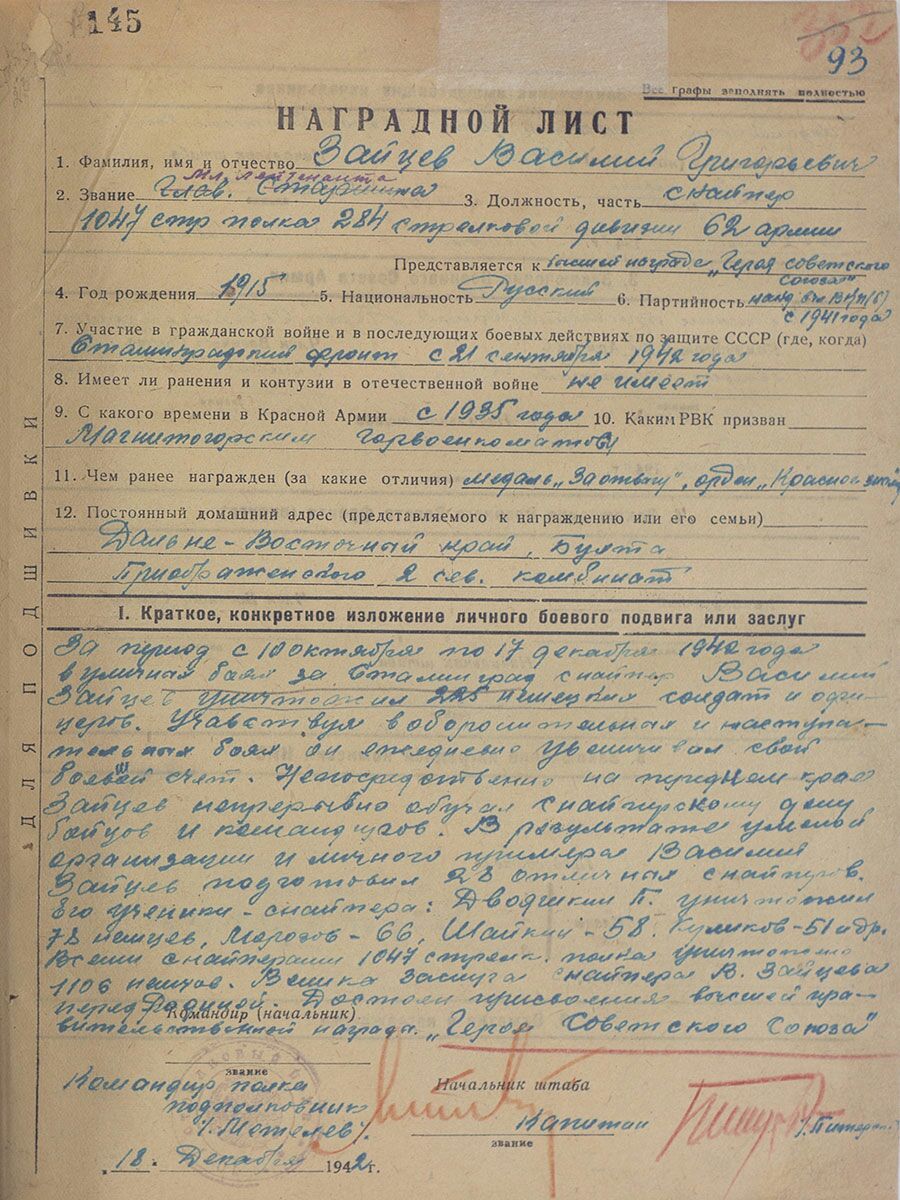 145
93
Все графы заполнять полностью
НАГРАДНОЙ ЛИСТ
1. Фамилия, имя и отчество Зайцев Василий Григорьевич
мл. лейтенанта
2. Звание Глав. Старшина 3. Должность, часть снайпер
1047 стр полка 284 стрелковой дивизии 62 армии
Представляется к высшей награде „Героя советского
союза"
4. Год рождения 1915 5. Национальность Русский 6. Партийность канд. ВКП(б)
с 1941 года
7. Участие в гражданской войне и в последующих боевых действиях по защите СССР (где, когда)
Сталинградский фронт с 21 сентября 1942 года
8. Имеет ли ранения и контузии в отечественной войне не имеет
9. С какого времени в Красной Армии с 1935 года 10. Каким РВК призван
Магнитогорским горвоенкоматом
11. Чем ранее награжден (за какие отличия) медаль „За отвагу", орден „Красной
12. Постоянный домашний адрес (представляемого к награждению или его семьи)
Дальне-Восточный край, Бухта
Приображенского 2 сев. комбинат
ДЛЯ ПОДШИВКИ
I. Краткое, конкретное изложение личного боевого подвига или заслуг
За период с 10 октября по 17 декабря 1942 года
в уличных боях за Сталинград снайпер Василий
Зайцев уничтожил 225 немецких солдат и офи-
церов. Учавствуя в оборонительных и наступа-
тельных боях он ежедневно увеличивал свой
боевой счет. Непосредственно на переднем крае
Зайцев непрерывно обучал снайперскому делу
бойцов и командиров. В результате умелой
организации и личного примера Василий
Зайцев подготовил 28 отличных снайперов.
Его ученики-снайпера: Двояшкин П. уничтожил
78 немцев, Морозов-66, Шайкин-58. Куликов-51 и др.
Всеми снайперами 1047 стрелк. полка уничтожено
1106 немцев. Велика заслуга снайпера В. Зайцева
перед Родиной. Достоин присвоения высшей пра-
Командир (начальник)
вительственной награды „Героя Советского Союза"
звание
Командир полка
подполковник
/. Метелев/.
Начальник штаба
Капитан
звание
18. Декабря 1942 г.